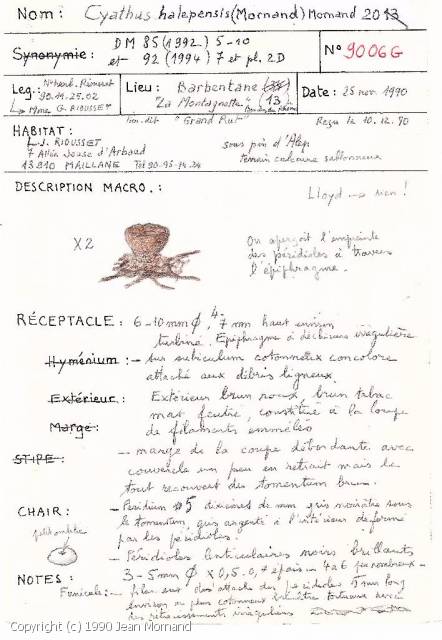 NOM : Cyathus halepensis (Mornand) Mornand 2013
Synonymie : DM 85 (1992) 5-10
et 92 (1994) 7 et pl. 2D
N° 9006G
Leg. : N° herb. Rémerat
90.11.25.02
Mme G. RIOUSSET
Lieu : Barbentane
"La Montagnette" (13
Bouches du Rhône
Date : 25 nov 1990
lieu-dit "Grand Puy"
Reçu le 10.12.90
HABITAT :
L.J. RIOUSSET
7 Allée Jouse d'Arbaud
13910 MAILLANE Tél 90-95-74-24
sous pin d'Alep
terrain calcaire sablonneux
DESCRIPTION MACRO. :
Lloyd → rien !
X2
On aperçoit l'empreinte
des péridioles à travers
l'épiphragme.
RÉCEPTACLE : 6-10 mm Ø, 4-7 mm haut environ
turbiné. Epiphragme à déchirure irrégulière
Hyménium : - sur subiculum cotonneux concolore
attaché aux débris ligneux.
Extérieur : Extérieur brun roux, brun tabac
mat feutré, constitué à la loupe
Marge : de filaments emmêlés
- marge de la coupe débordante avec
STIPE : couvercle un peu en retrait mais le
tout recouvert du tomentum brun.
CHAIR : - Péridium 5 dixièmes de mm gris noirâtre sous
le tomentum, gris argenté à l'intérieur déformé
par les péridioles.
petit ombilic
- Péridioles lenticulaires noirs brillants
NOTES : 3-5 mm Ø x 0,5-0,7 épais in 4 à 6 peu nombreux -
Funicule : - filan est des attache des péridioles 5 mm long
environ un peu cotonneux tortueux avec
des rétrécissements irréguliers
Copyright (c) 1990 Jean Mornand